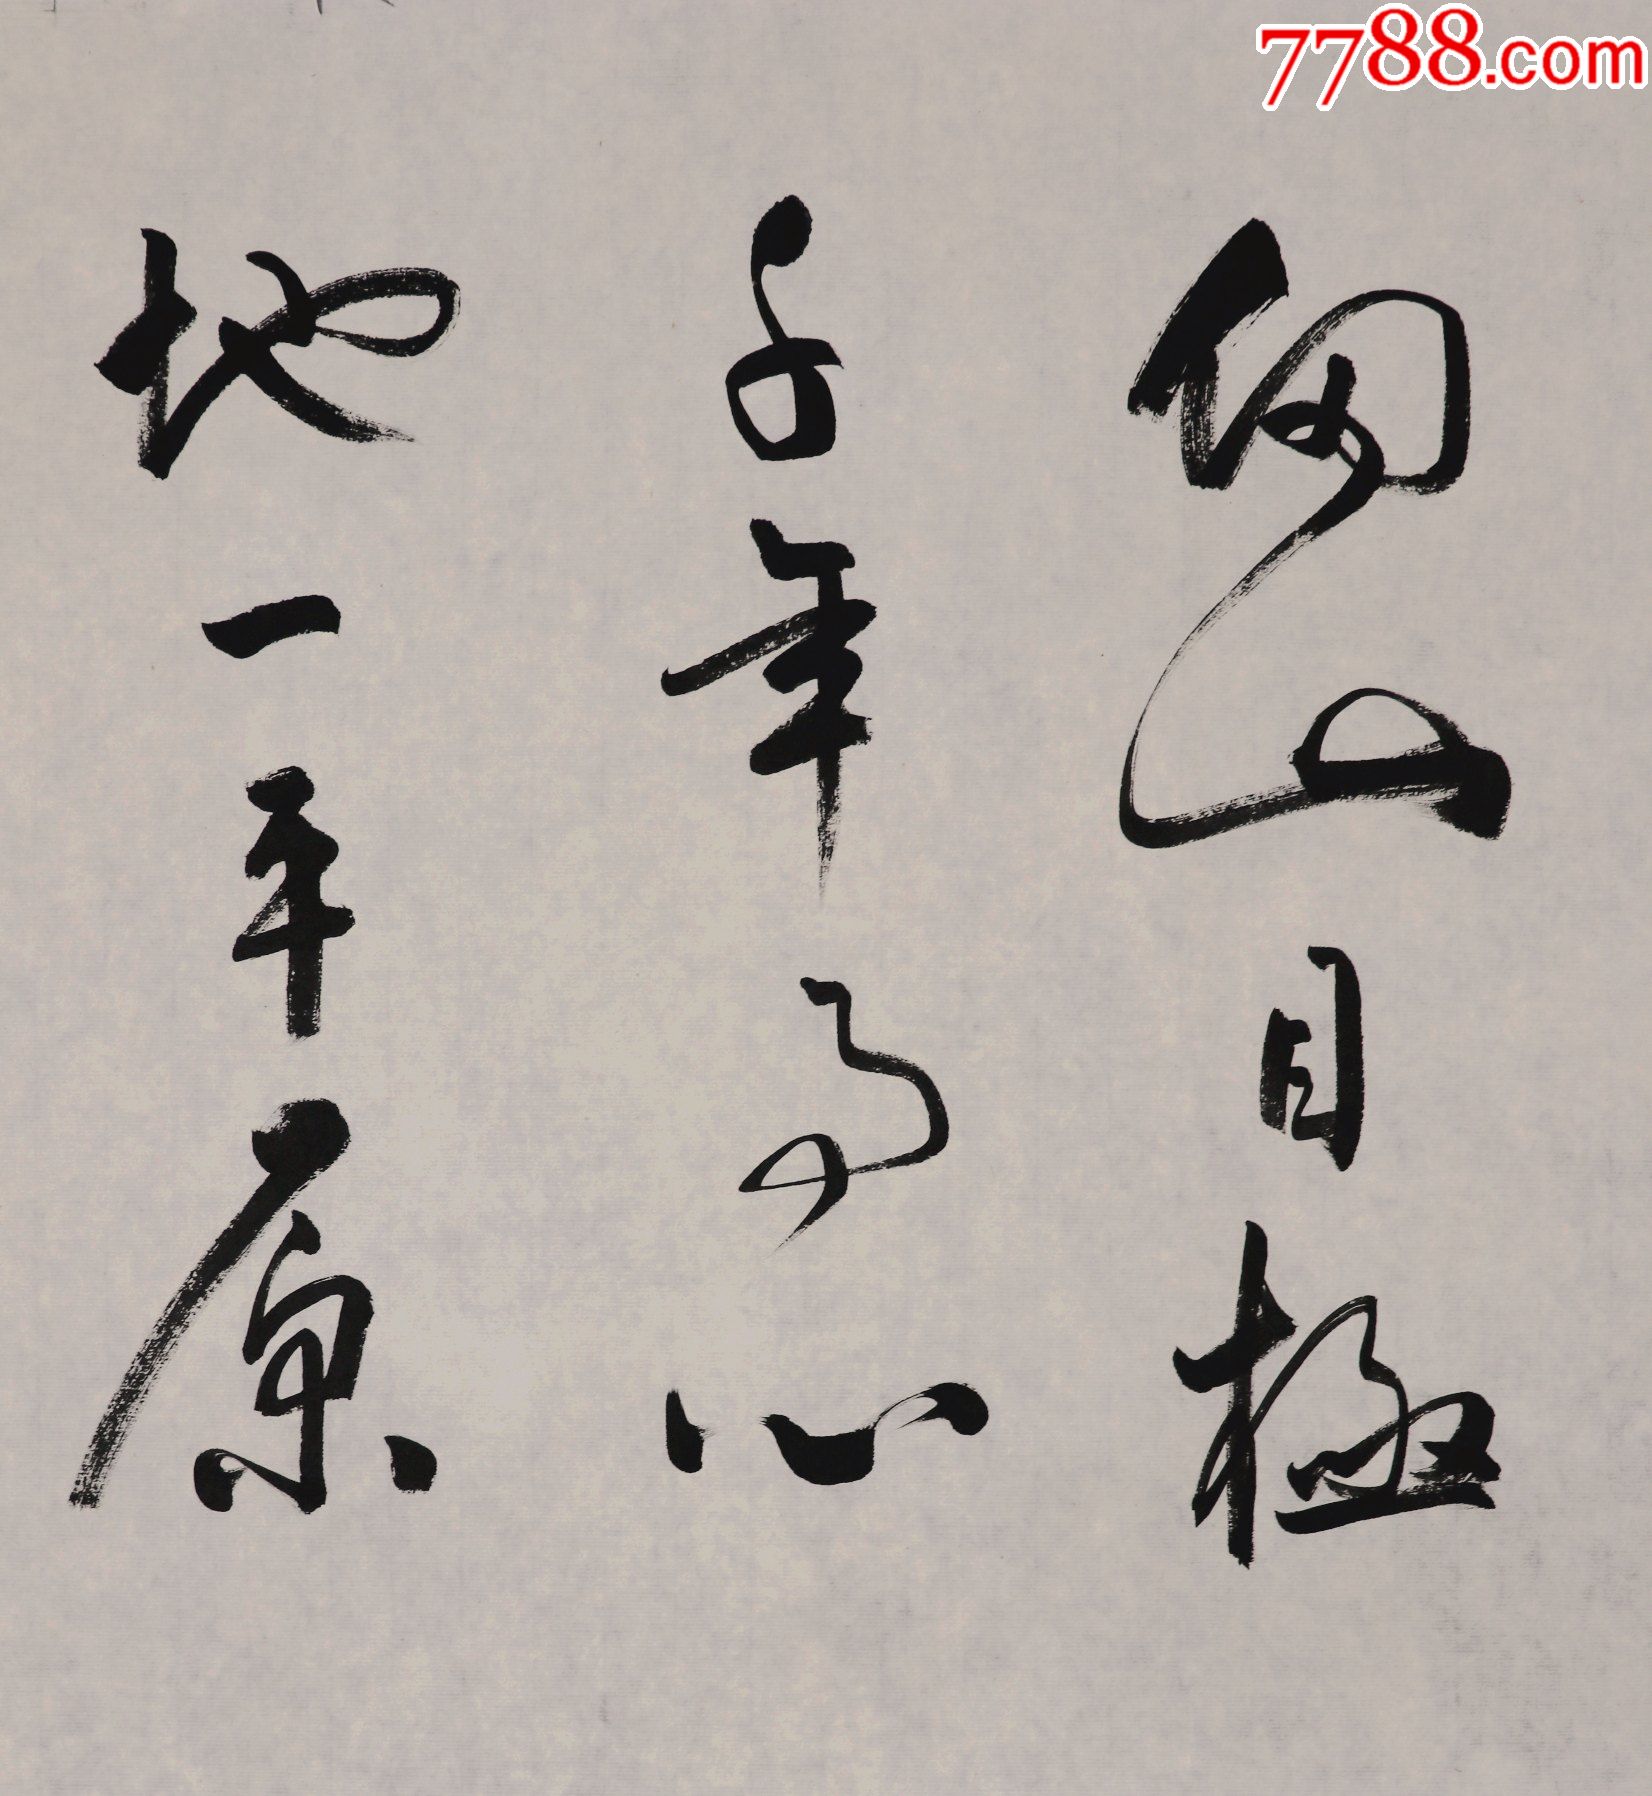 仞山目極
千年事心
地一平原
7788.com